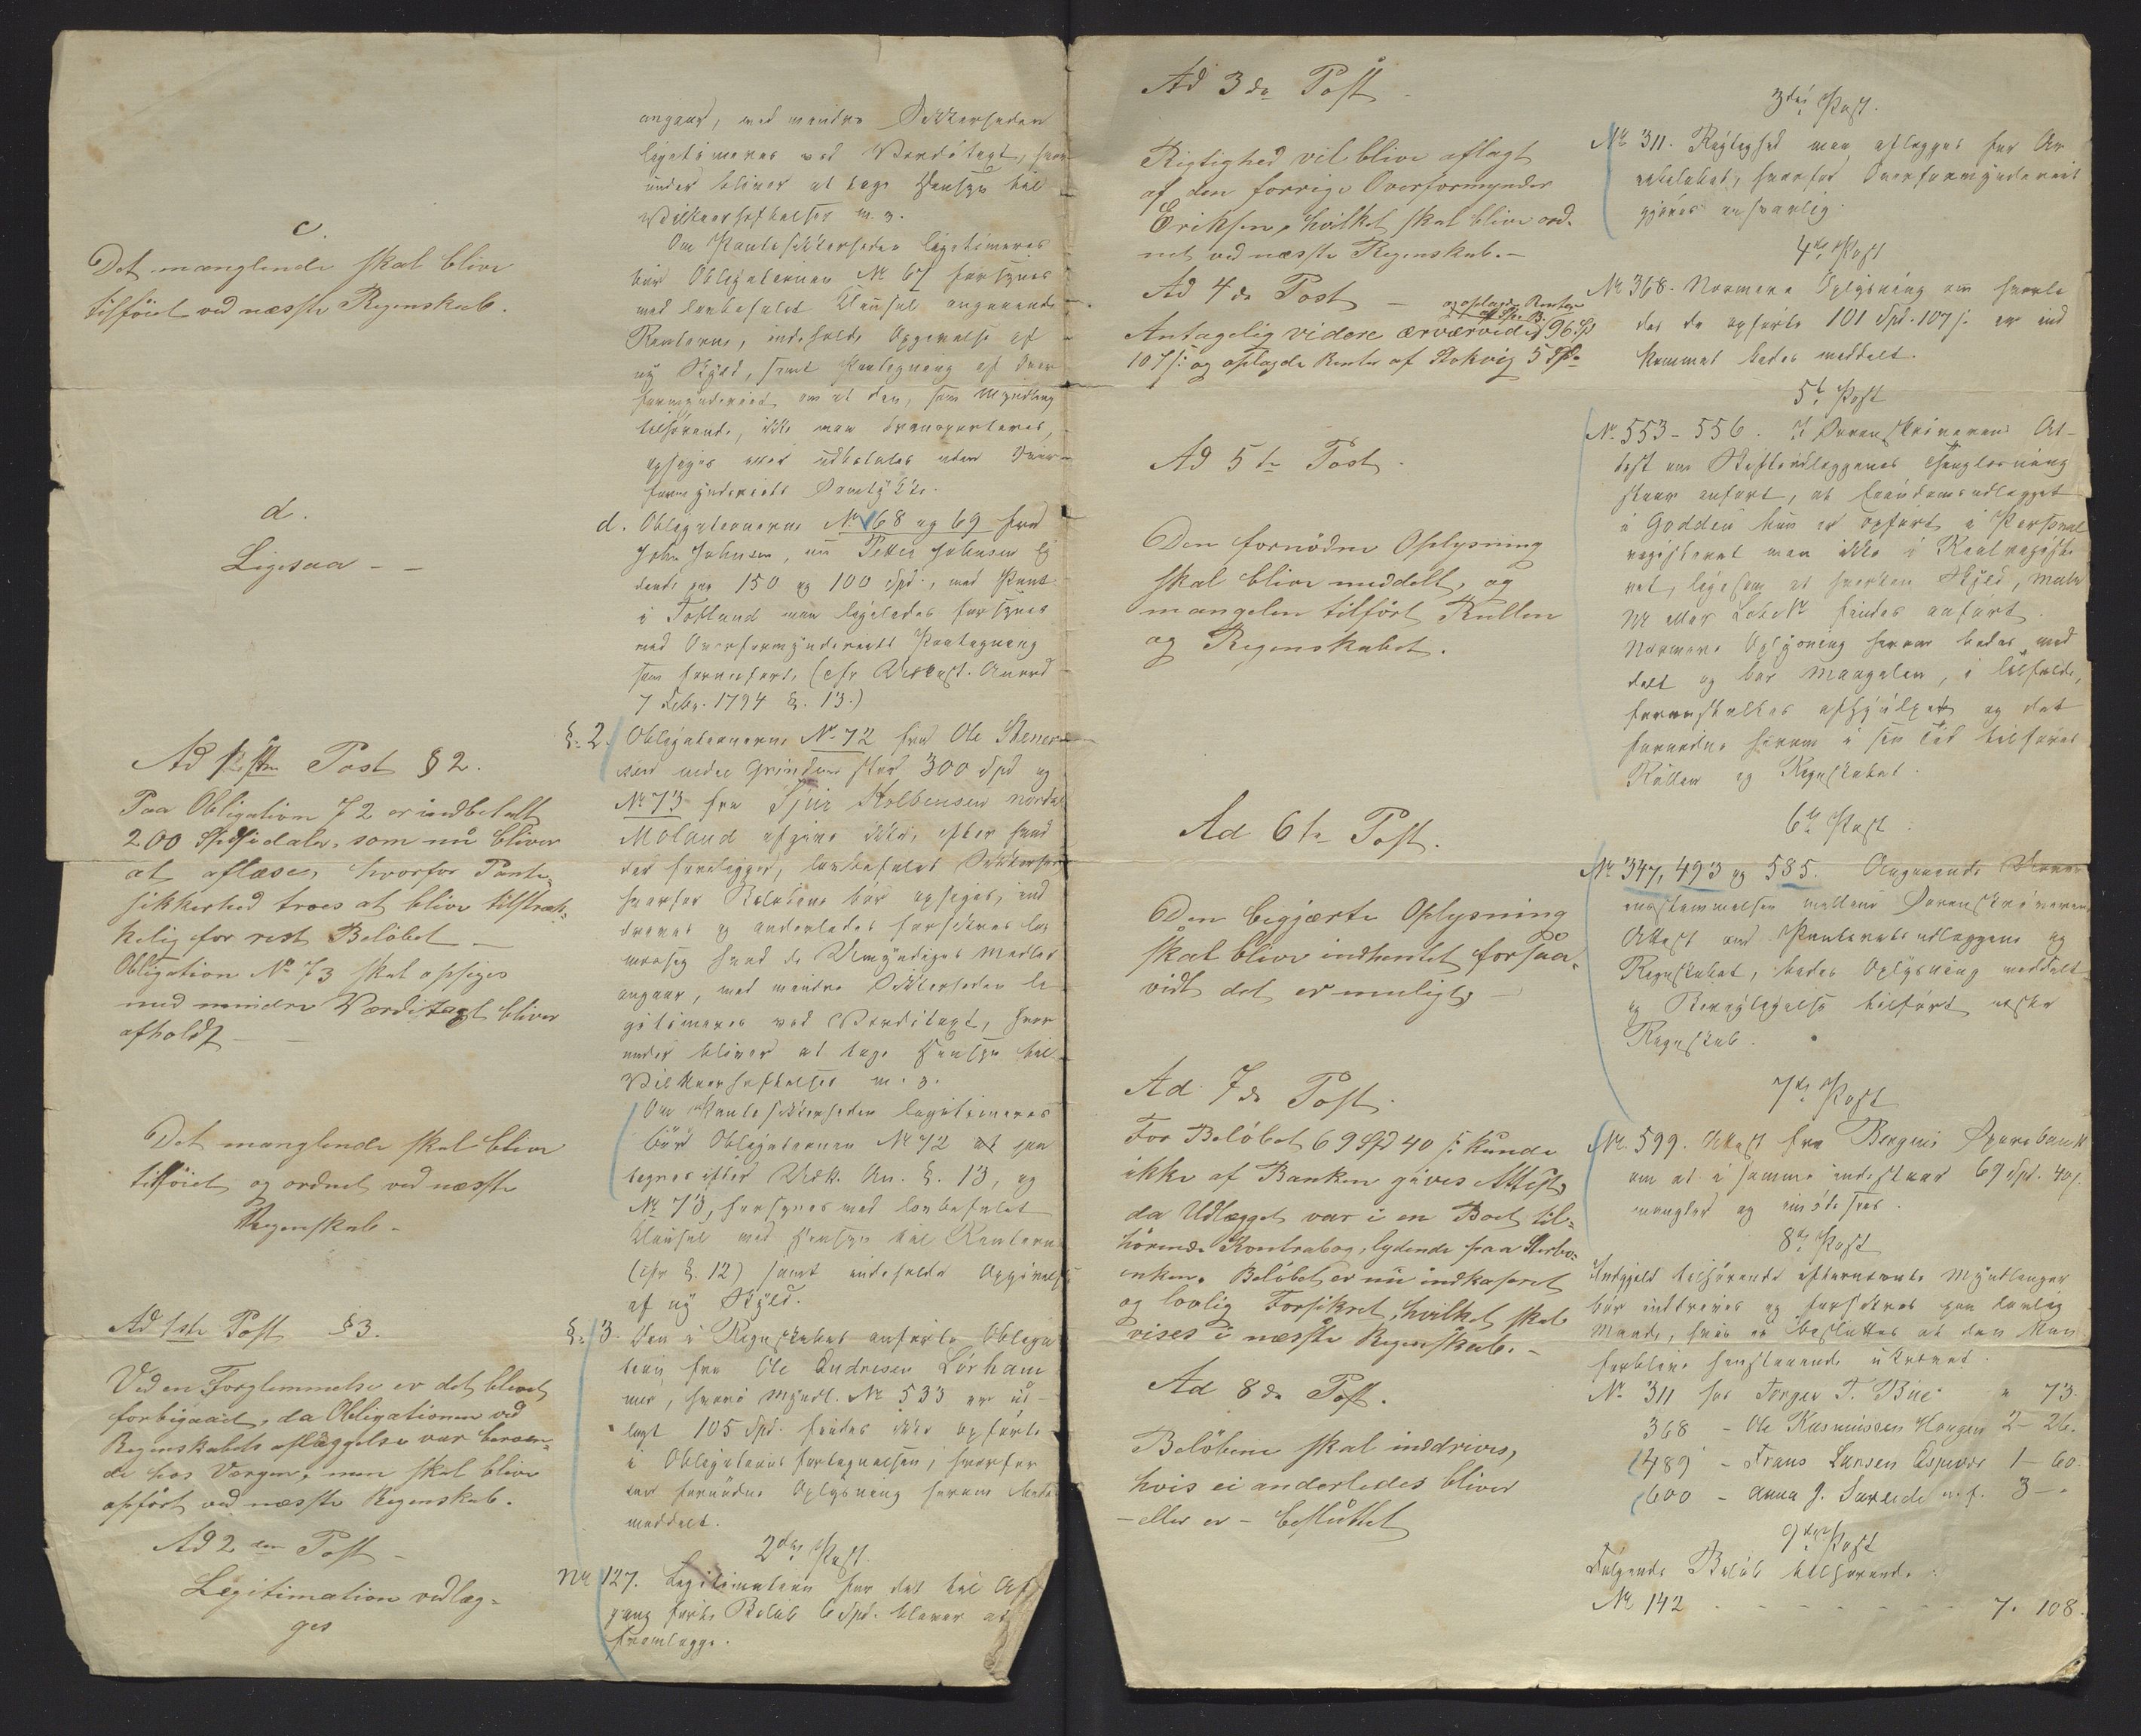 c.
Det manglende skal blive
tilföiet ved næste Regenskab.
d.
Ligesaa - -
Ad 1ste Post § 2.
Paa Obligation 72 er indbetalt
200 Speciedaler, som nu bliver
at aflæse, hvorfor Pante-
sikkerhed troes at blive tilstræk-
kelig for rest Belöbet -
Obligation No 73 skal opsiges
med mindre Værditaxt bliver
afholdt -
Det manglende skal blive
tilföiet og ordnet ved næste
Regenskab -
Ad 1ste Post § 3.
Ved en Forglemmelse er det blevet
forbigaaet, da Obligationen ved
Regenskabets aflæggelse var beroen-
de hos Værgen, men skal blive
opfört ved næste Regenskab.
Ad 2den Post -
Legitimation vedlæg-
ges
angaar, med mindre Sikkerheden
legitimeres ved Værditaxt, hvor
under bliver at tage Hensyn til
Vilkaarsheftelser m. v.
Om Pantesikkerheden legitimeres
bör Obligationen No 67 forsynes
med lovbefalet Clausul angaaende
Renterne, indeholde Opgivelse af
ny Skyld, samt Paategning af Over
formynderiet om at den, som Myndling
tilhörende, ikke maa transporteres,
opsiges eller udbetales uden Over
formynderiets Samtykke.
d. Obligationerne No 68 og 69 fra
John Johnsen, nu Petter Johnsen ly
dende paa 150 og 100 Spd., med Pant
i Tofland maa ligeledes forsynes
med Overformynderiets Paategning
som foranfört, (cfr Anord
7 Febr. 1794 §. 13.)
§. 2. Obligationerne No 72 fra Ole Stener
sen nedre Grindem stor 300 Spd og
No 73 fra Sjur Kolbensen nordre
Moland afgive ikke, efter hvad
der foreligger, lovbefalet Sikkerhed
hvorfor Belöbene bör opsiges, ind
drives og anderledes forsikres lov
mæssig hvad de Umyndiges Midler
angaar, med mindre Sikkerheden le
gitimeres ved Værditaxt, hvor
under bliver at tage Hensyn til
Vilkaarsheftelser m. v.
Om Pantesikkerheden legitimeres
bör Obligationen No 72 paa
tegnes efter An. §. 13, og
No 73, forsynes med lovbefalet
Clausul med Hensyn til Renterne
(cfr §. 12) samt indeholde Opgivelse
af ny Skyld.
§. 3. Den i Regnskabet anförte Obliga
tion fra Ole Andresen Lörham
mer, hvori Myndl. No 533 er ud
lagt 105 Spd. findes ikke opfört
i Obligationsfortegnelsen, hvorfor
den fornödne Oplysning herom bedes
meddelt.
2den Post.
No 127. Legitimation for det til Af
gang förte Belöb 6 Spd. bliver at
fremlægge.
Ad 3de Post -
Rigtighed vil blive aflagt
af den forrige Overformynder
Eriksen, hvilket skal blive ord-
net ved næste Regenskab. -
Ad 4de Post -
og oplagde Renter
Antagelig videre 96 Sp
107 s: og oplagde Renter af Rokvig 5 Sp
Ad 5te Post.
Den fornödne Oplysning
skal blive meddelt, og
mangelen tilfört Rullen
og Regenskabet.
Ad 6te Post.
Den begjærte Oplysning
skal blive indhentet forsaa-
vidt det er muligt, -
Ad 7de Post.
For Belöbet 69 Spd 40 s: kunde
ikke af Banken gives Attest,
da Udlægget var i en Boet til-
hörende Kontrabog, lydende paa Sterbo-
enken. Belöbet er nu indkaseret
og lovlig Forsikret, hvilket skal
vises i næste Regenskab. -
Ad 8de Post.
Belöbene skal inddrives,
hvis ei anderledes bliver
- eller er - besluttet
3die Post.
No 311. Rigtighed maa aflægges for Ar
vebelöbet, hvorfor Overformynderiet
gjöres ansvarlig.
4de Post
No 368. Nærmere Oplysning om hvorle
des de opförte 101 Spd. 107 s. er ind
kommet bedes meddelt.
5te Post
No 553-556. I Sorenskriverens At-
test om Skifteudlæggenes Thinglæsning
staar anfört, at Eiendomsudlægget
i Godden kun er opfört i Personal
registeret men ikke i Realregiste
ret, ligesom at hverken Skyld, Matr
No eller LöbeNo findes anfört.
Nærmere Oplysning herom bedes med
delt og bör Mangelen, i Tilfælde,
foranstaltes afhjulpet og det
fornödne herom i sin Tid tilföres
Rullen og Regnskabet.
6te Post.
No 347, 493 og 585. Angaaende Uover
ensstemmelsen mellem Sorenskriverens
Attest om Panteretsudlæggene og
Regnskabet, bedes Oplysning meddelt
og Berigtigelse tilfört næste
Regnskab.
7de Post
No. 599. Attest fra Bergens Sparebank
om at i samme indestaar 69 Spd. 40 s.
mangler og imödesees.
8de Post
Indgjeld tilhörende efternævnte Myndlinger
bör inddrives og forsikres paa lovlig
Maade, hvis ei besluttes at den kan
forblive henstaaende ukrævet.
No 311 hos Torger T. Bue " 73.
368 - Ole Rasmussen Haugen 2 - 26.
489 - Frans Larsen Espevde 1 - 60.
600 - Anna J. Sareide u. f. 3 - "
9de Post
Fölgende Belöb tilhörende:
No 142 - - - - - - - 7. 108.